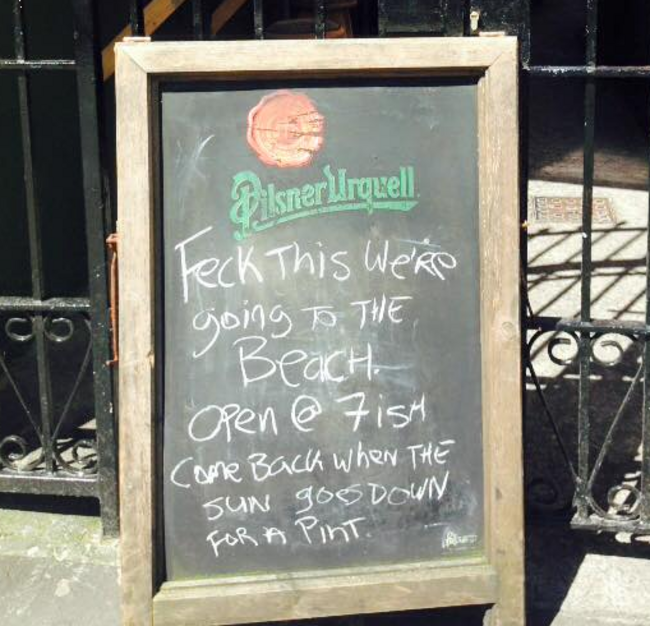 Pilsner Urquell
Feck This We're
going To THE
Beach.
Open @ 7ish
Come Back when THE
sun goes Down
FOR A Pint.